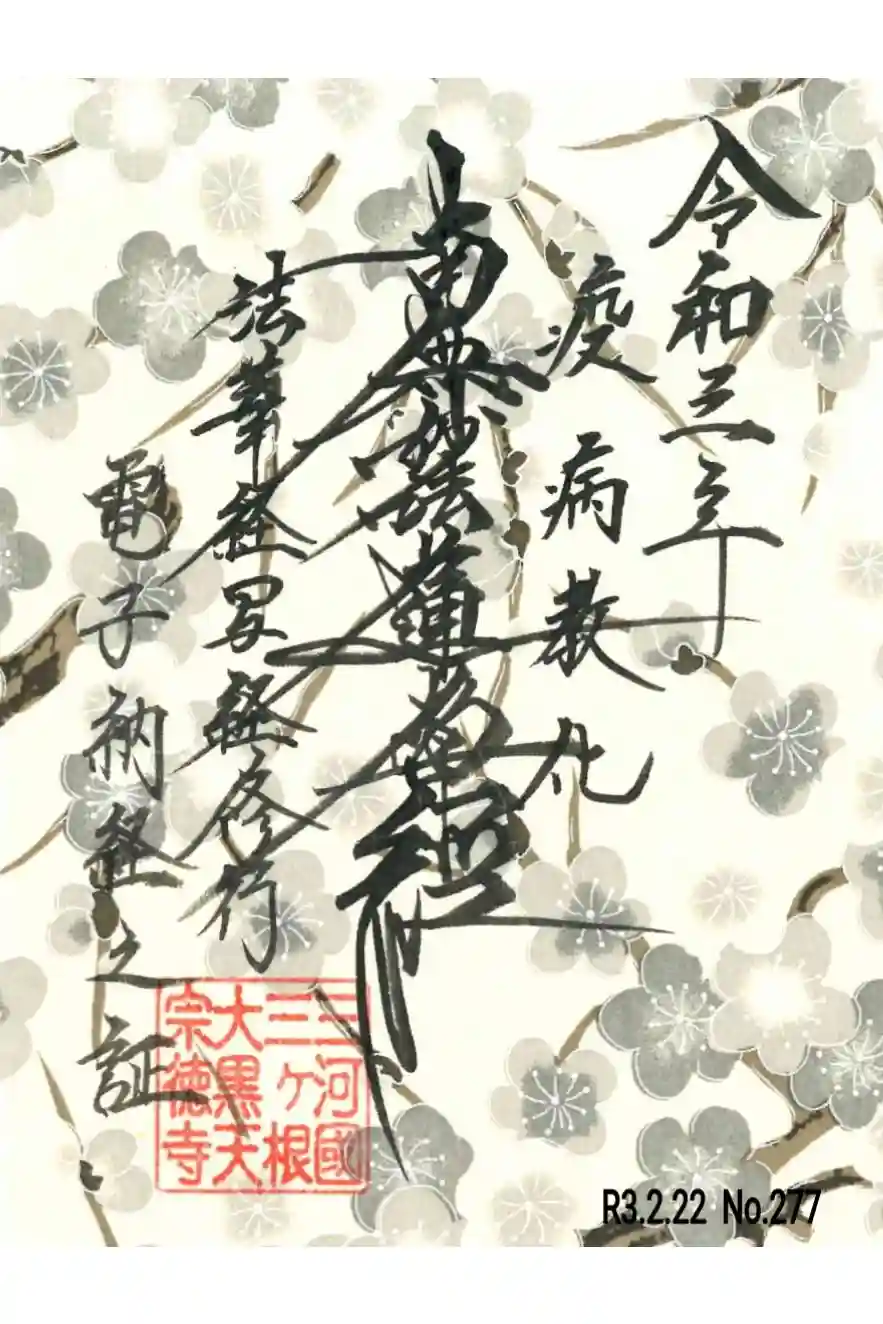 令和三年
疫病教化
南無妙法蓮華経
法華経写経修行
電子納経之証
三河國
三ヶ根
大黒天
宗徳寺
R3.2.22 No.277